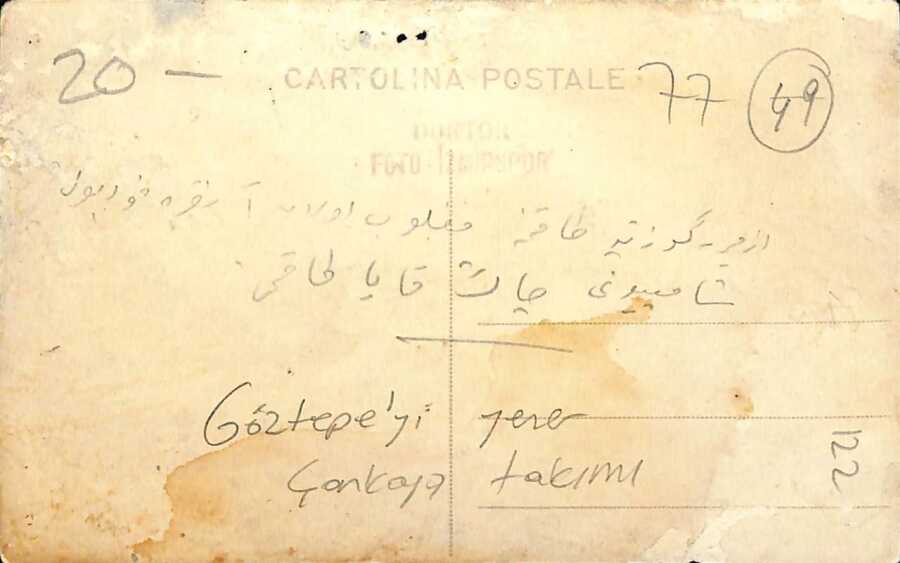 20 —
CARTOLINA POSTALE
77
49
DOKTOR
FOTO İZMİRSPOR
ازمیر گوزتپه طاقمنه مغلوب اولان آنقره فوتبول
شامپیونی چانقایا طاقمی
Göztepe'yi yenen
Çankaya takımı
122